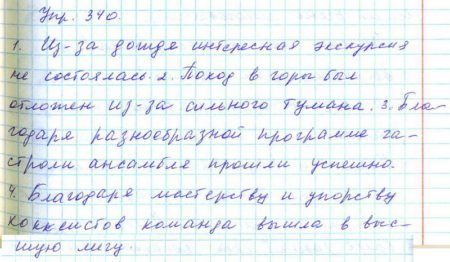 Упр. 340.
1. Из-за дождя интересная экскурсия
не состоялась. 2. Поход в горы был
отложен из-за сильного тумана. 3. Бла-
годаря разнообразной программе га-
строли ансамбля прошли успешно.
4. Благодаря мастерству и упорству
хоккеистов команда вышла в выс-
шую лигу